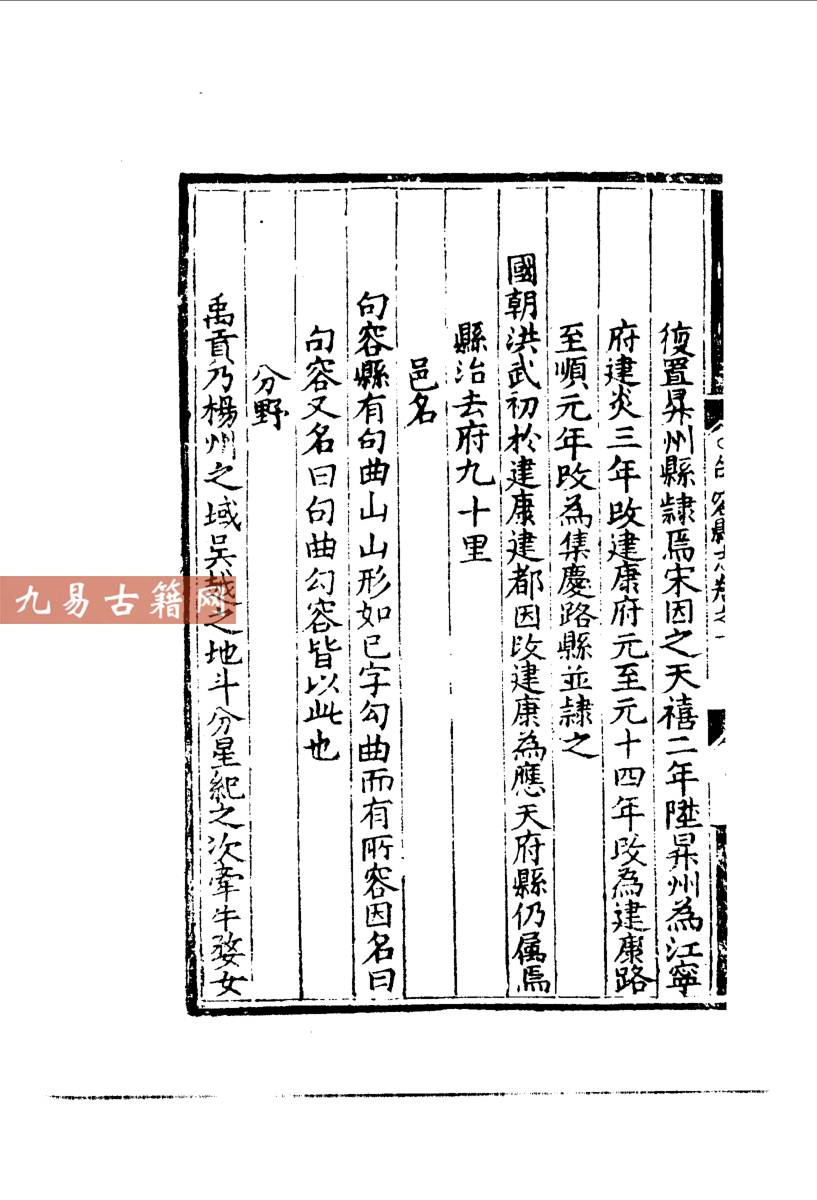 復置昇州縣隷焉宋因之天禧二年陞昇州為江寧
府建炎三年改建康府元至元十四年改為建康路
至順元年改為集慶路縣並隷之
國朝洪武初於建康建都因改建康為應天府縣仍属焉
縣治去府九十里
邑名
句容縣有句曲山山形如已字勾曲而有所容因名曰
句容又名曰句曲勾容皆以此也
分野
禹貢乃楊州之域吴越之地斗分星紀之次牽牛婺女
容縣志卷之一
九易古籍网